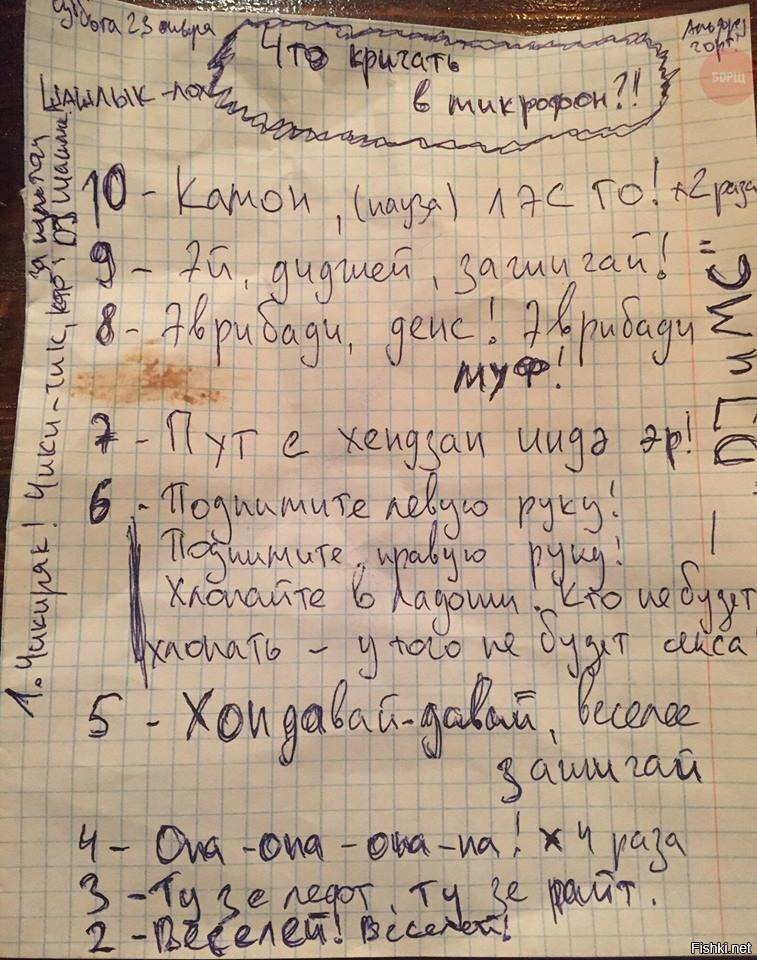 Суббота 23 января
Что кричать
в микрофон?!!
ШАШЛЫК -
БОРЩ
10 - Камон, (пауза) ЛЭС ГО! х2 раза
9 - Эй, диджей, зажигай!
8 - Эврибади, денс! Эврибади
муф!
7 - Пут е хендзап индэ эр!
6 - Поднимите левую руку!
Поднимите правую руку!
Хлопайте в ладоши! Кто не будет
хлопать - у того не будет секса
5 - Хоп давай-давай, веселее
зажигай
4 - Опа -опа -опа -па! х 4 раза
3 - Ту зе лефт, ту зе райт.
2 - Веселей! Веселей!
1. Чикиряк! Чики-тик,
за пультом
DJ
DJ и МС"
Fishki.net